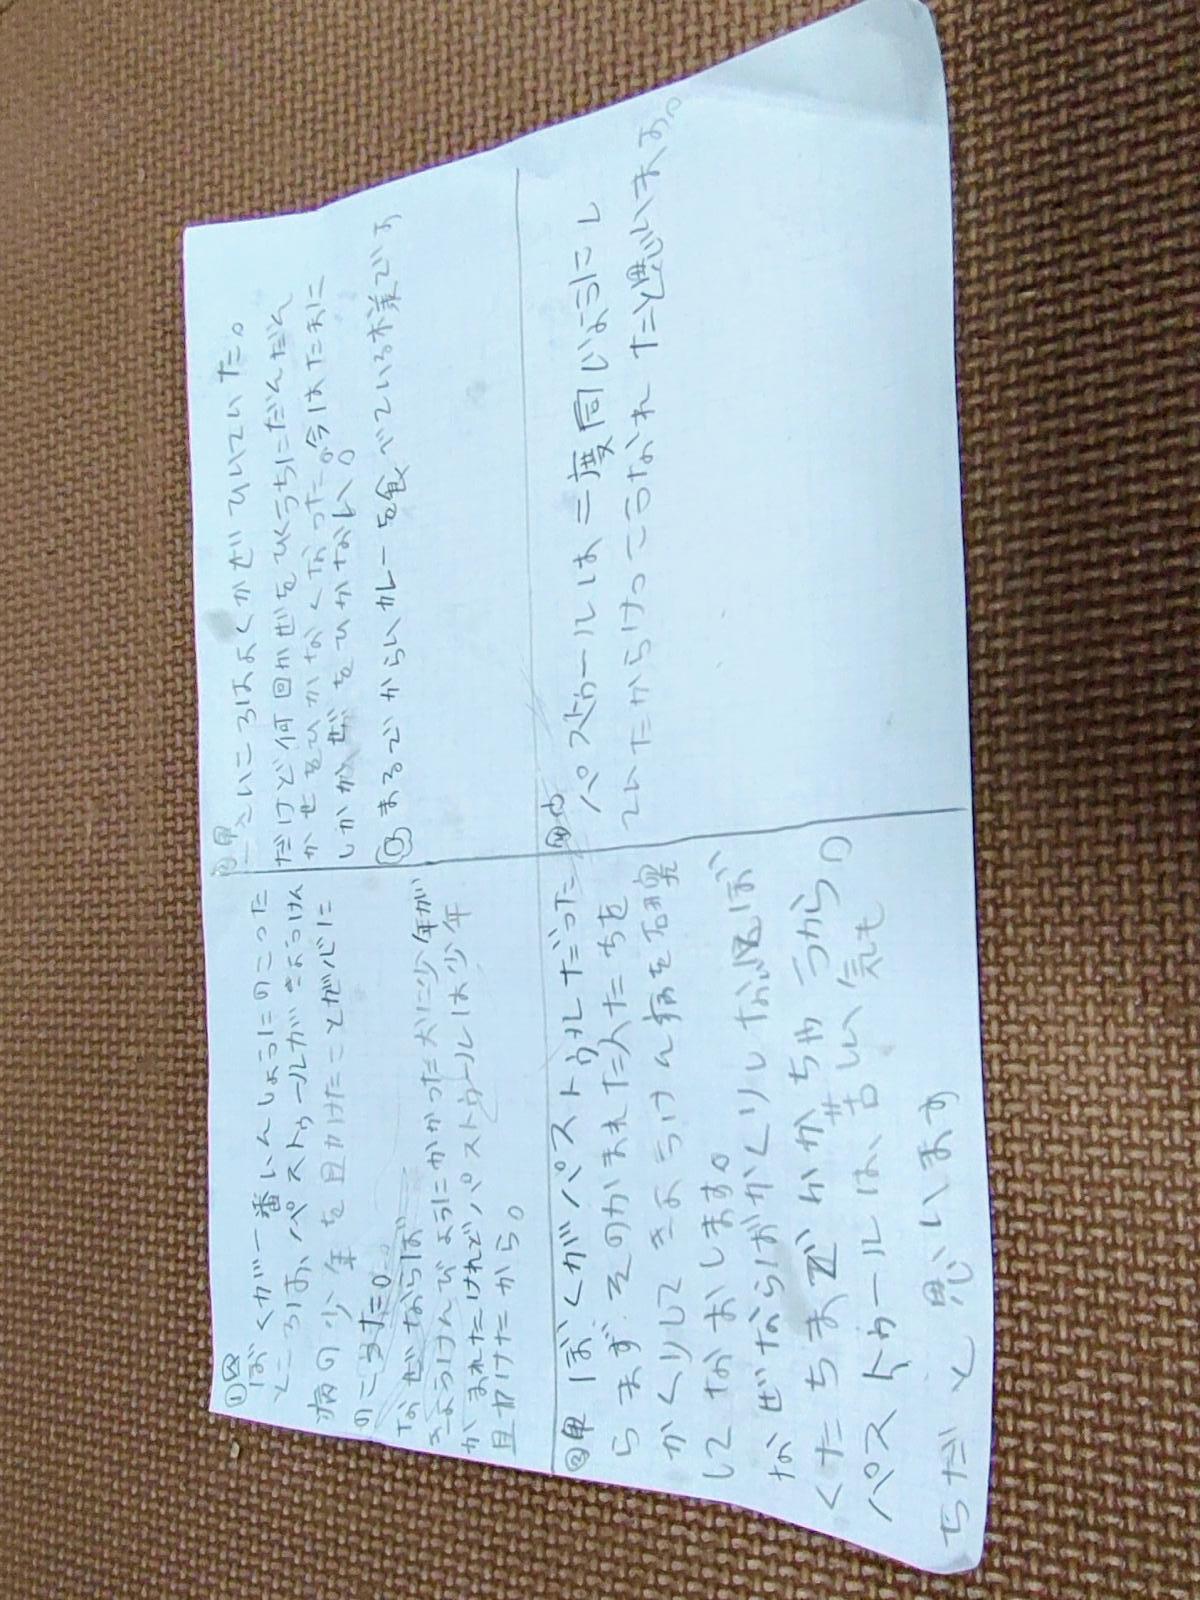 ①
ぼくが一番いんしょうにのこった
ところは、パストゥールがきょうけん
病の少年を助けたことが心に
のこった。
なぜならば
きょうけんびょうにかかった犬に少年が
かまれたけれどパストゥールは少年
助けたから。
②
小さいころはよくかぜひいていた。
だけど何回かぜをひくうちにだんだん
かぜをひかなくなった。今はたまに
しかかぜをひかない。
まるでからいカレーを食べている様です
③ ぼくがパストゥルだった
らまず、そのかまれた人たちを
かくりしてきょうけん病を石研究
してなおします。
なぜならばかくりしないとぼ
くたちまでかかちゃうから。
パストゥールは、苦しい気も
ちだと思います
④
パストゥールは二度同じようにし
ていたからけっこうなれたと思います。